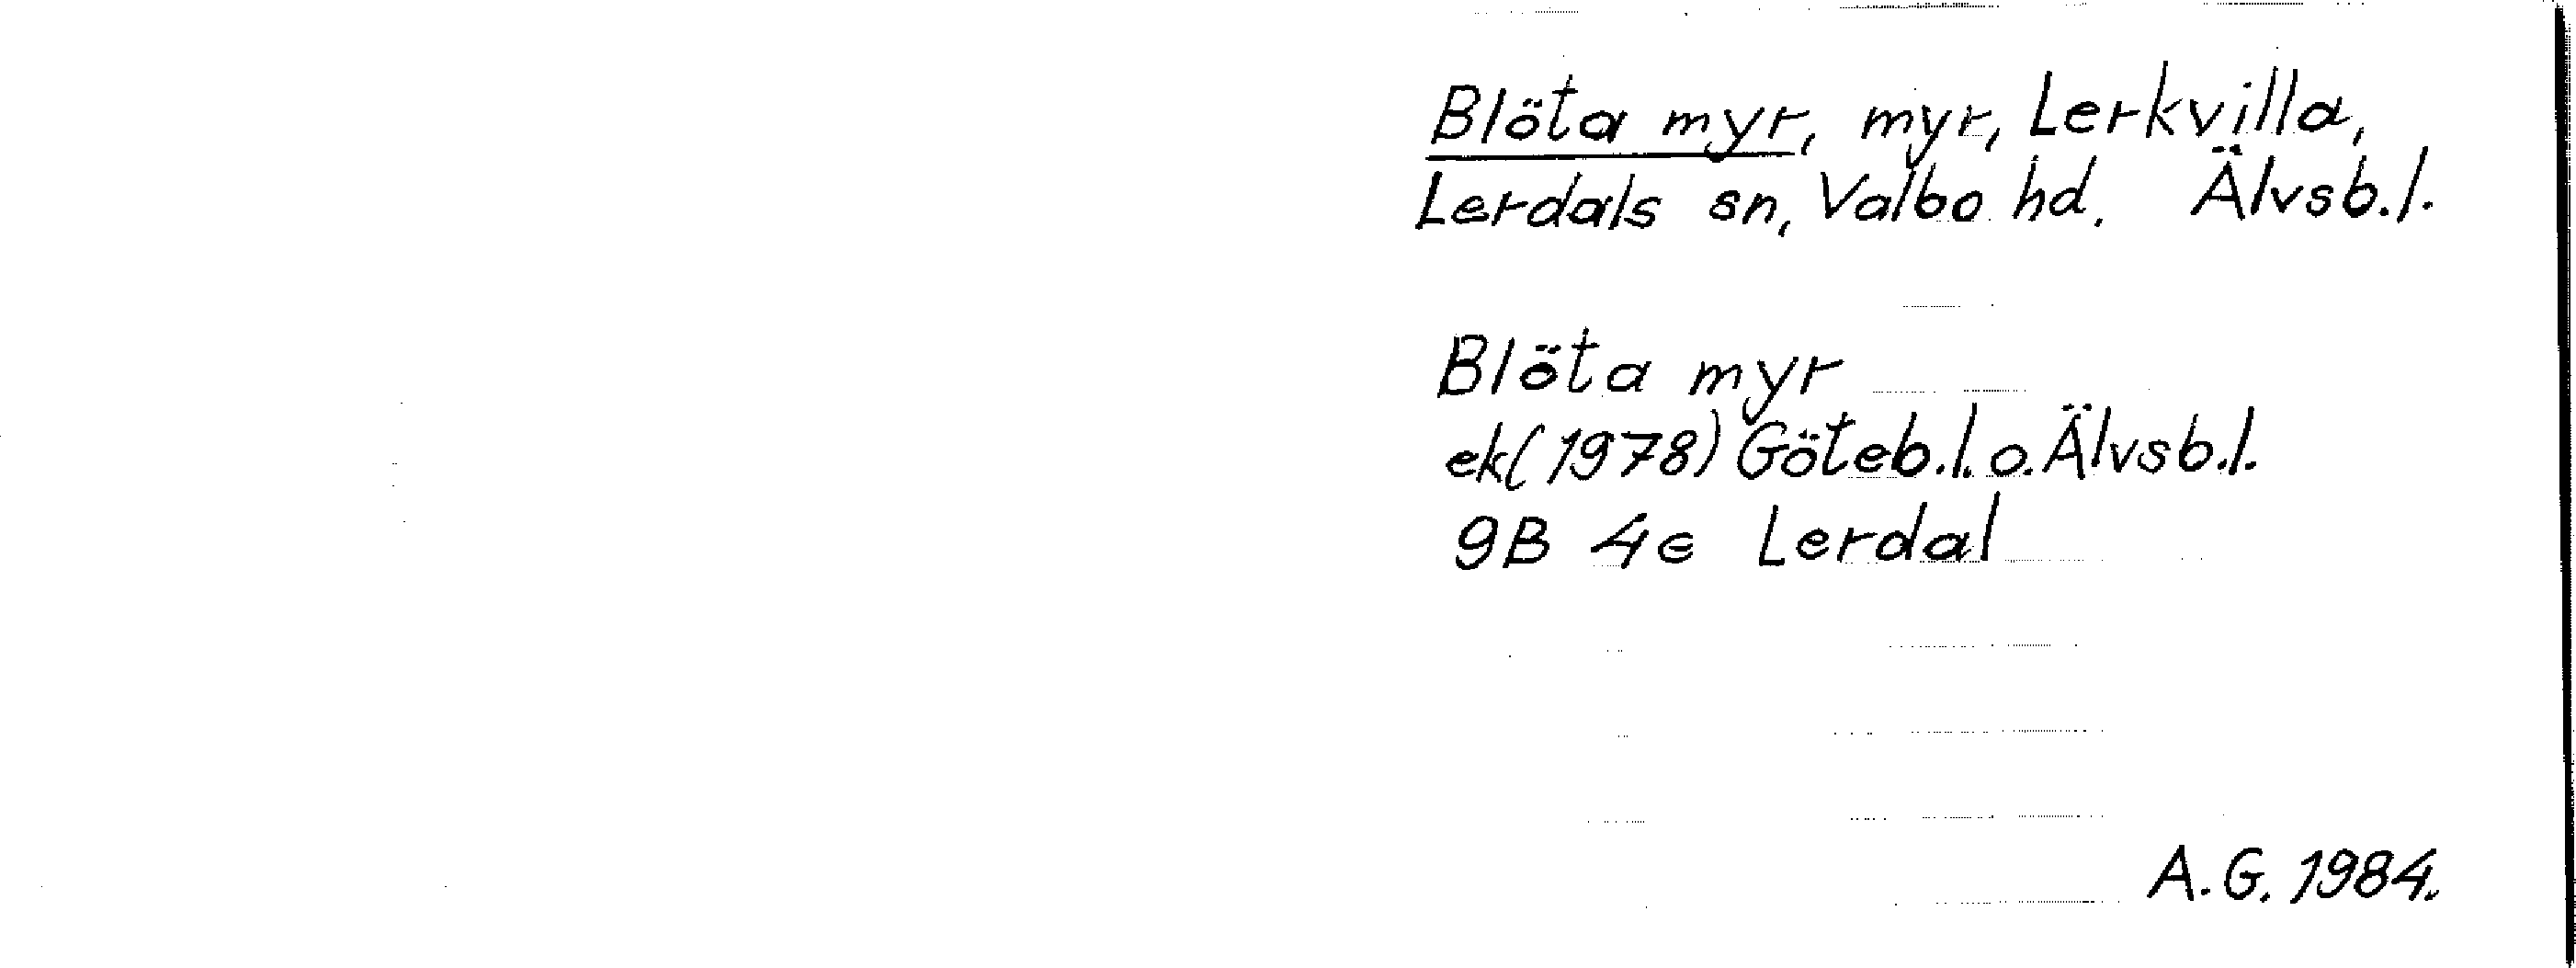 Blöta myr, myr, Lerkvilla,
Lerdals sn, Valbo hd. Älvsb.l.
Blöta myr
ek(1978) Göteb.l. o. Älvsb.l.
9B 4e Lerdal
A.G. 1984.